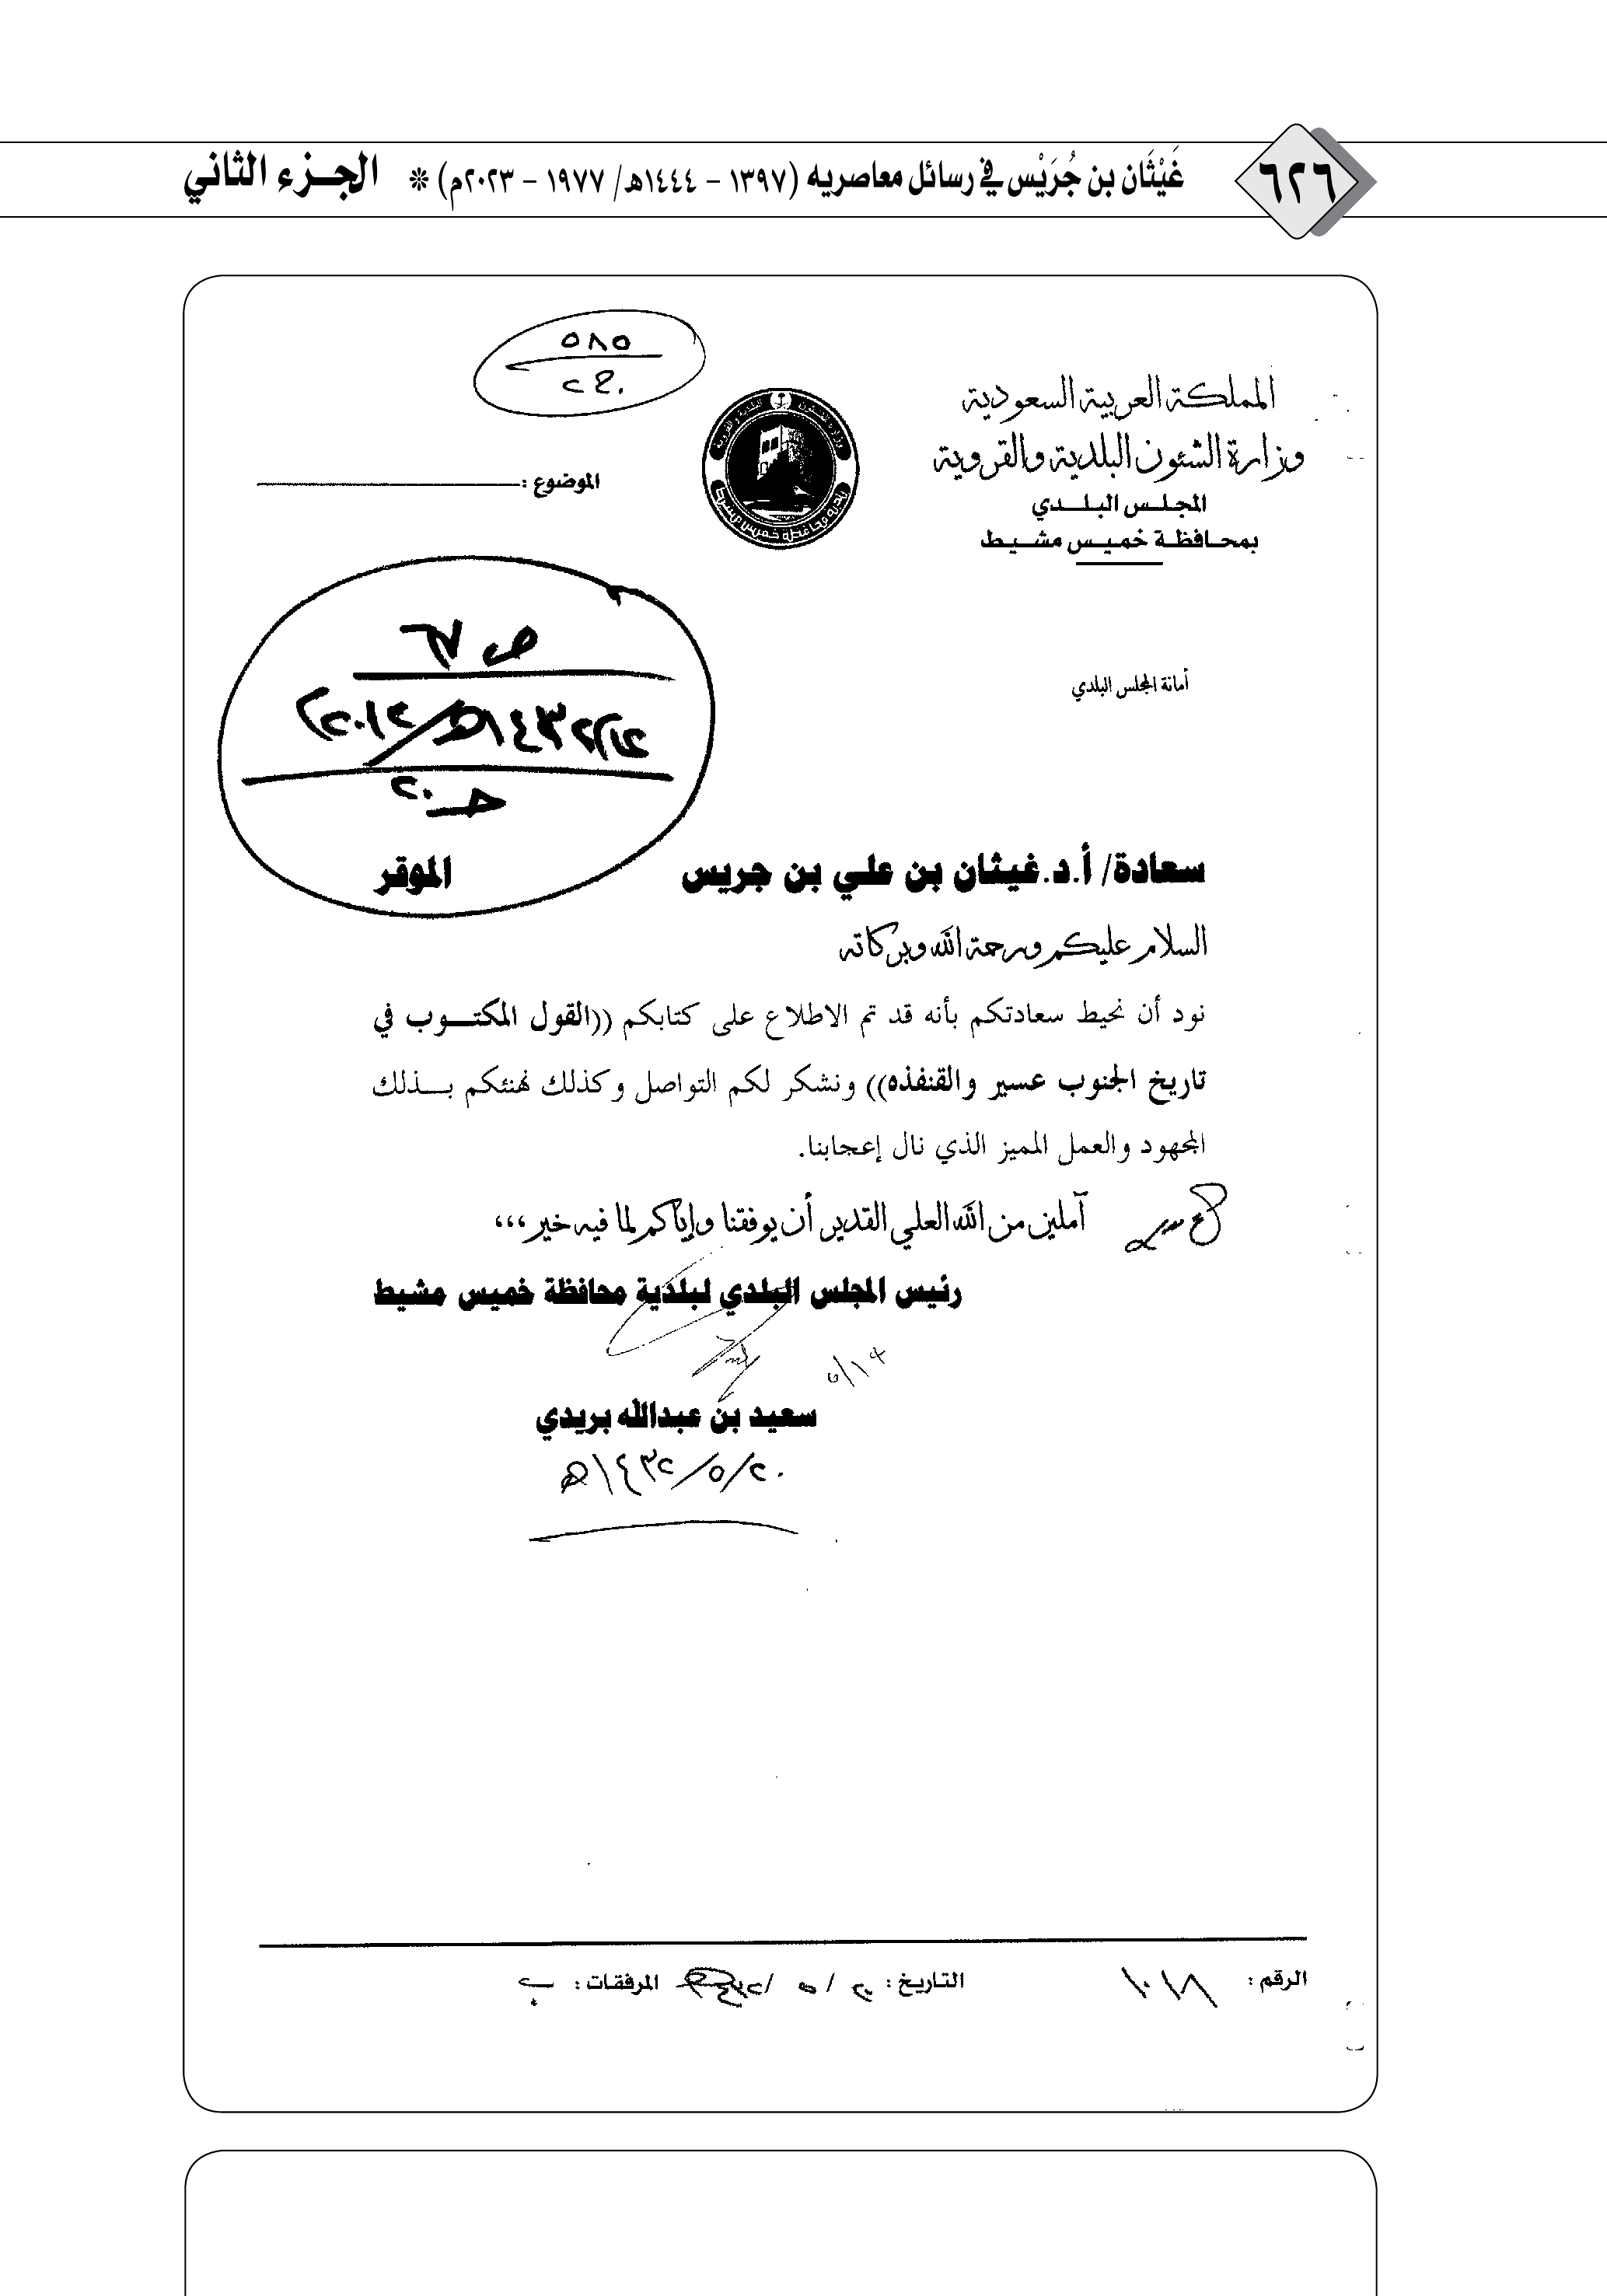 ٦٢٦
غَيْثَان بن جُرَيْس في رسائل معاصريه (١٣٩٧ - ١٤٤٤هـ/ ١٩٧٧ - ٢٠٢٣م) * الجزء الثاني
٥٨٥
المملكة العربية السعودية
وزارة الشئون البلدية والقروية
المجلس البلدي
بمحافظة خميس مشيط
الموضوع :
أمانة المجلس البلدي
سعادة/ أ.د.غيثان بن علي بن جريس الموقر
السلام عليكم ورحمة الله وبركاته
نود أن نحيط سعادتكم بأنه قد تم الاطلاع على كتابكم ((القول المكتوب في
تاريخ الجنوب عسير والقنفذه)) ونشكر لكم التواصل وكذلك نهنئكم بذلك
المجهود والعمل المميز الذي نال إعجابنا.
آملين من الله العلي القدير أن يوفقنا وإياكم لما فيه خير ،،،
رئيس المجلس البلدي لبلدية محافظة خميس مشيط
٥/١٩
سعيد بن عبدالله بريدي
٢٠/٥/١٤٣٢هـ
الرقم : التاريخ : ٢٠ / ٥ / المرفقات :